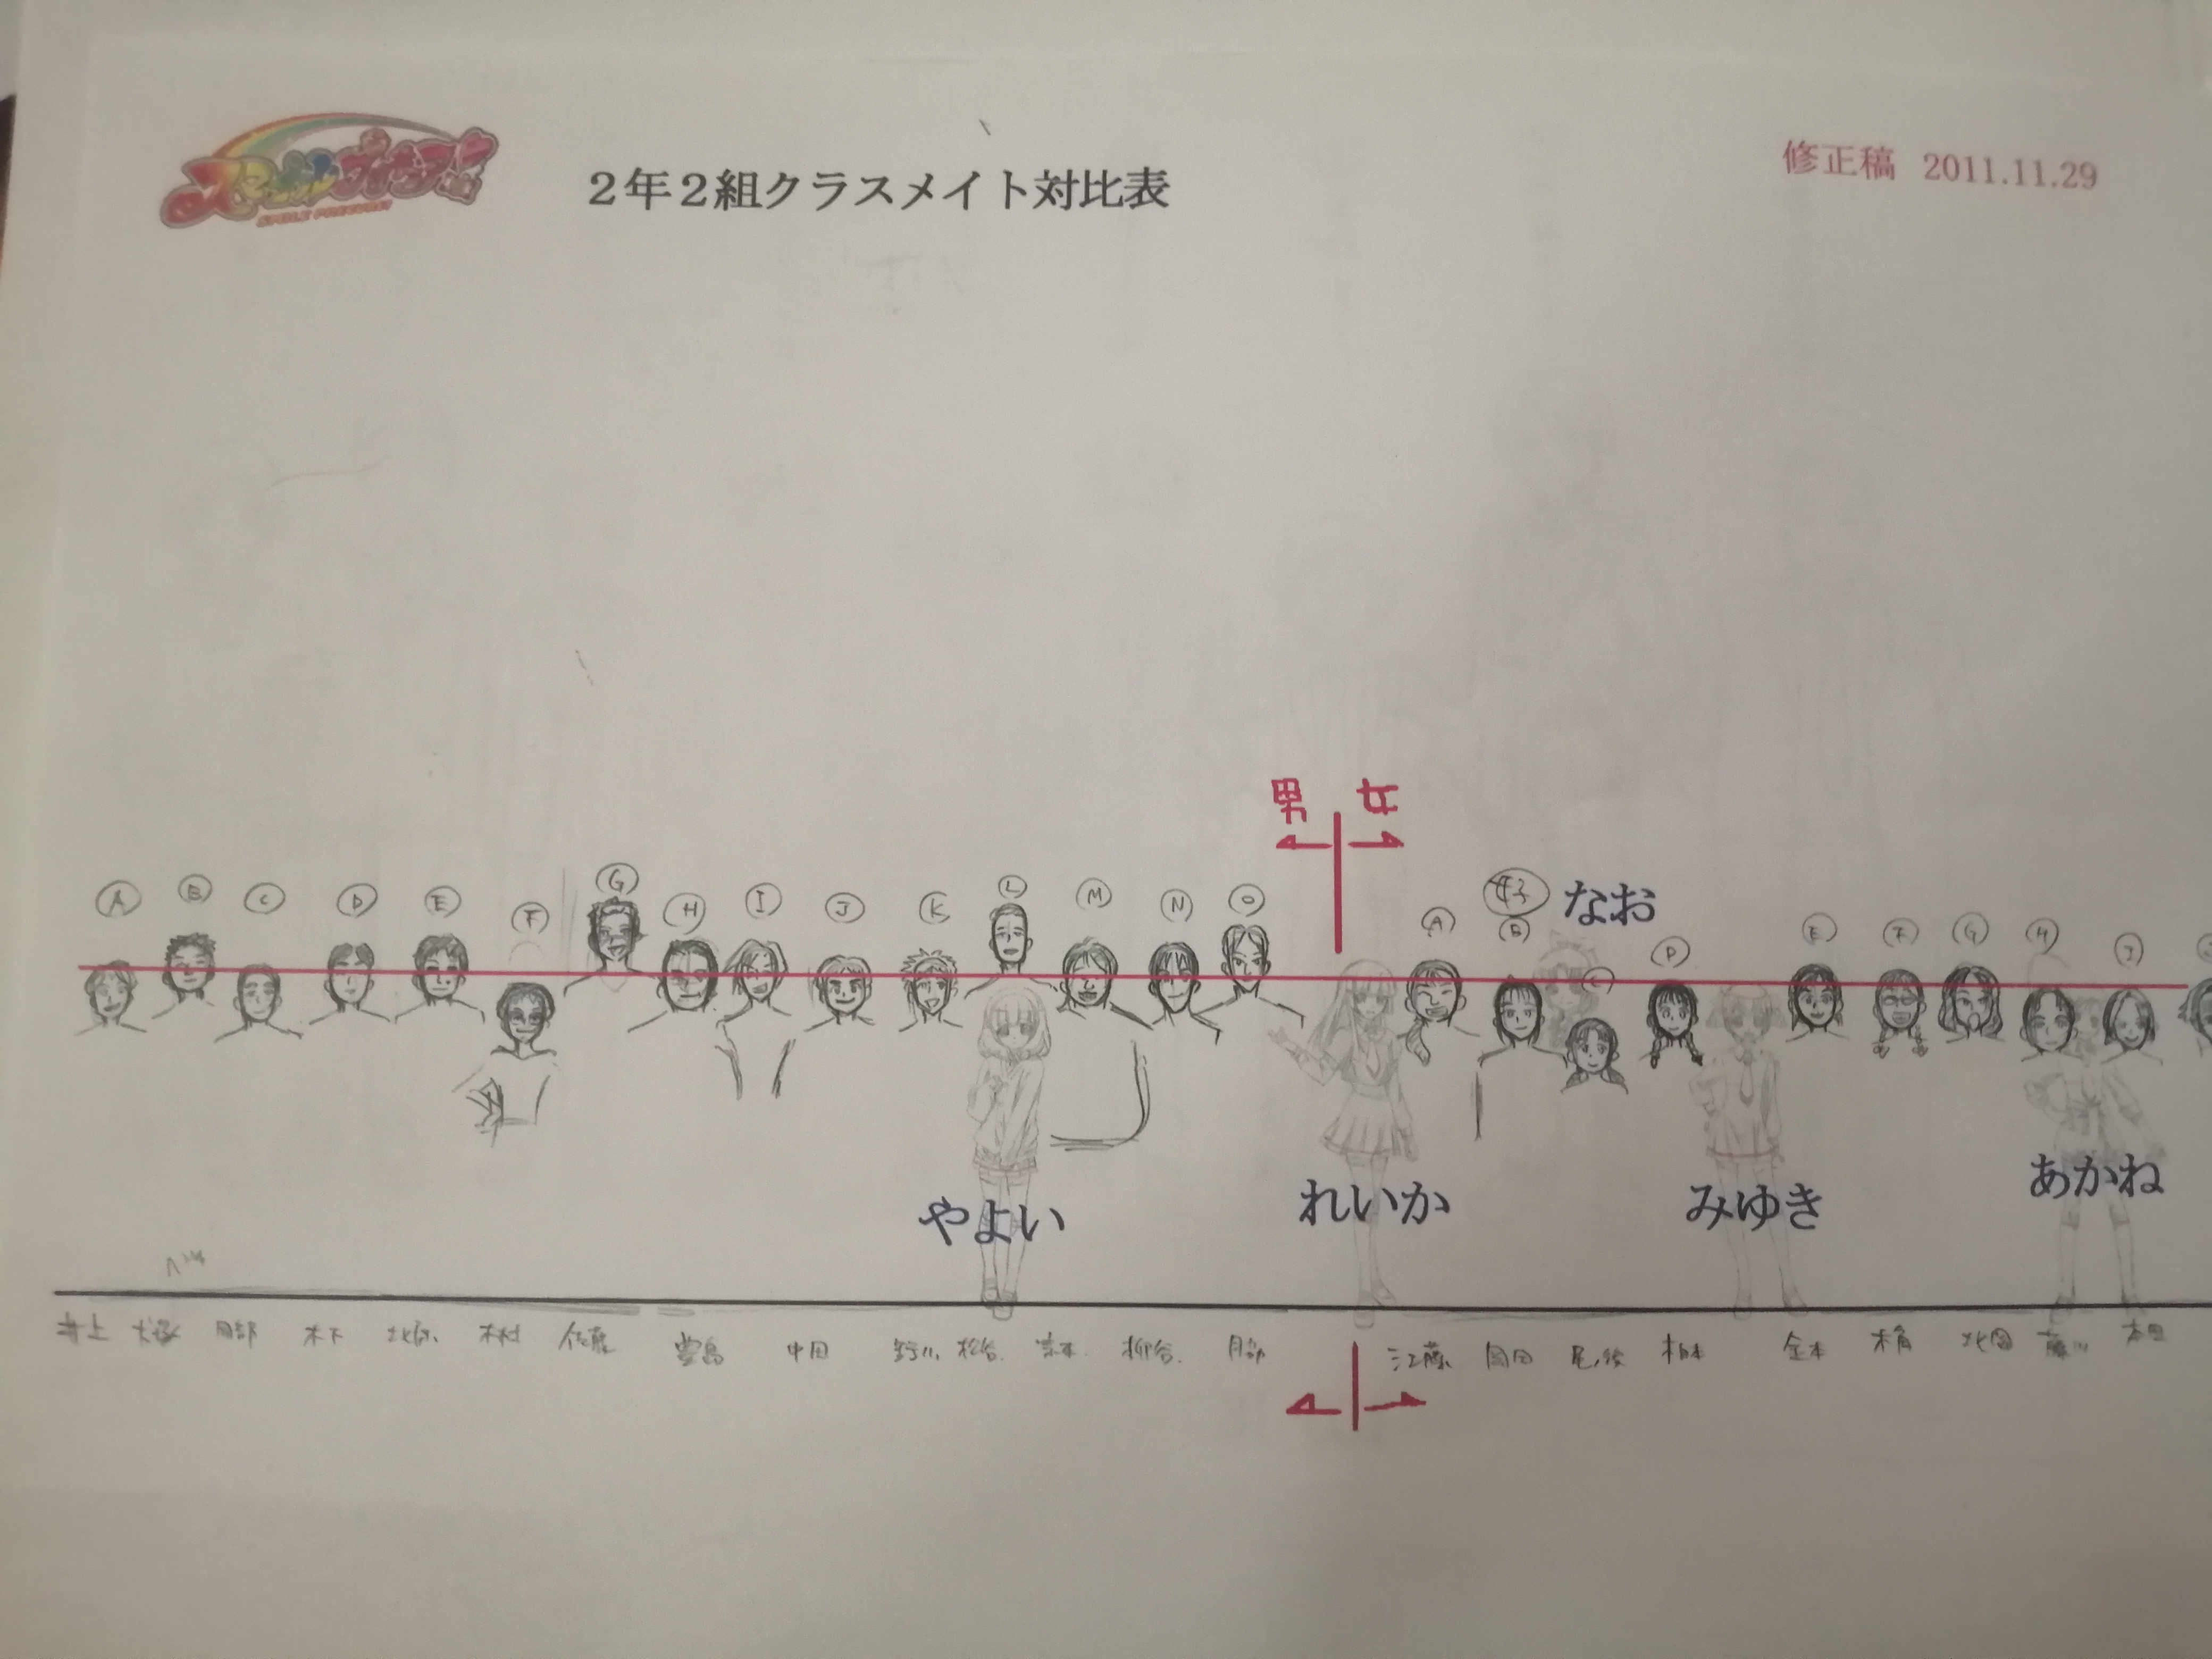 スマイルプリキュア!
SMILE PRECURE!
2年2組クラスメイト対比表
修正稿 2011.11.29
男 女
A B C D E F G H I J K L M N O
好 なお
A B C D E F G H I
やよい れいか みゆき あかね
井上 大塚 岡部 木下 北原 木村 佐藤 豊島 中田 鈴川 松谷 宗本 柳谷 江藤 岡田 尾後 柏本 金本 木角 北国 藤川 本田